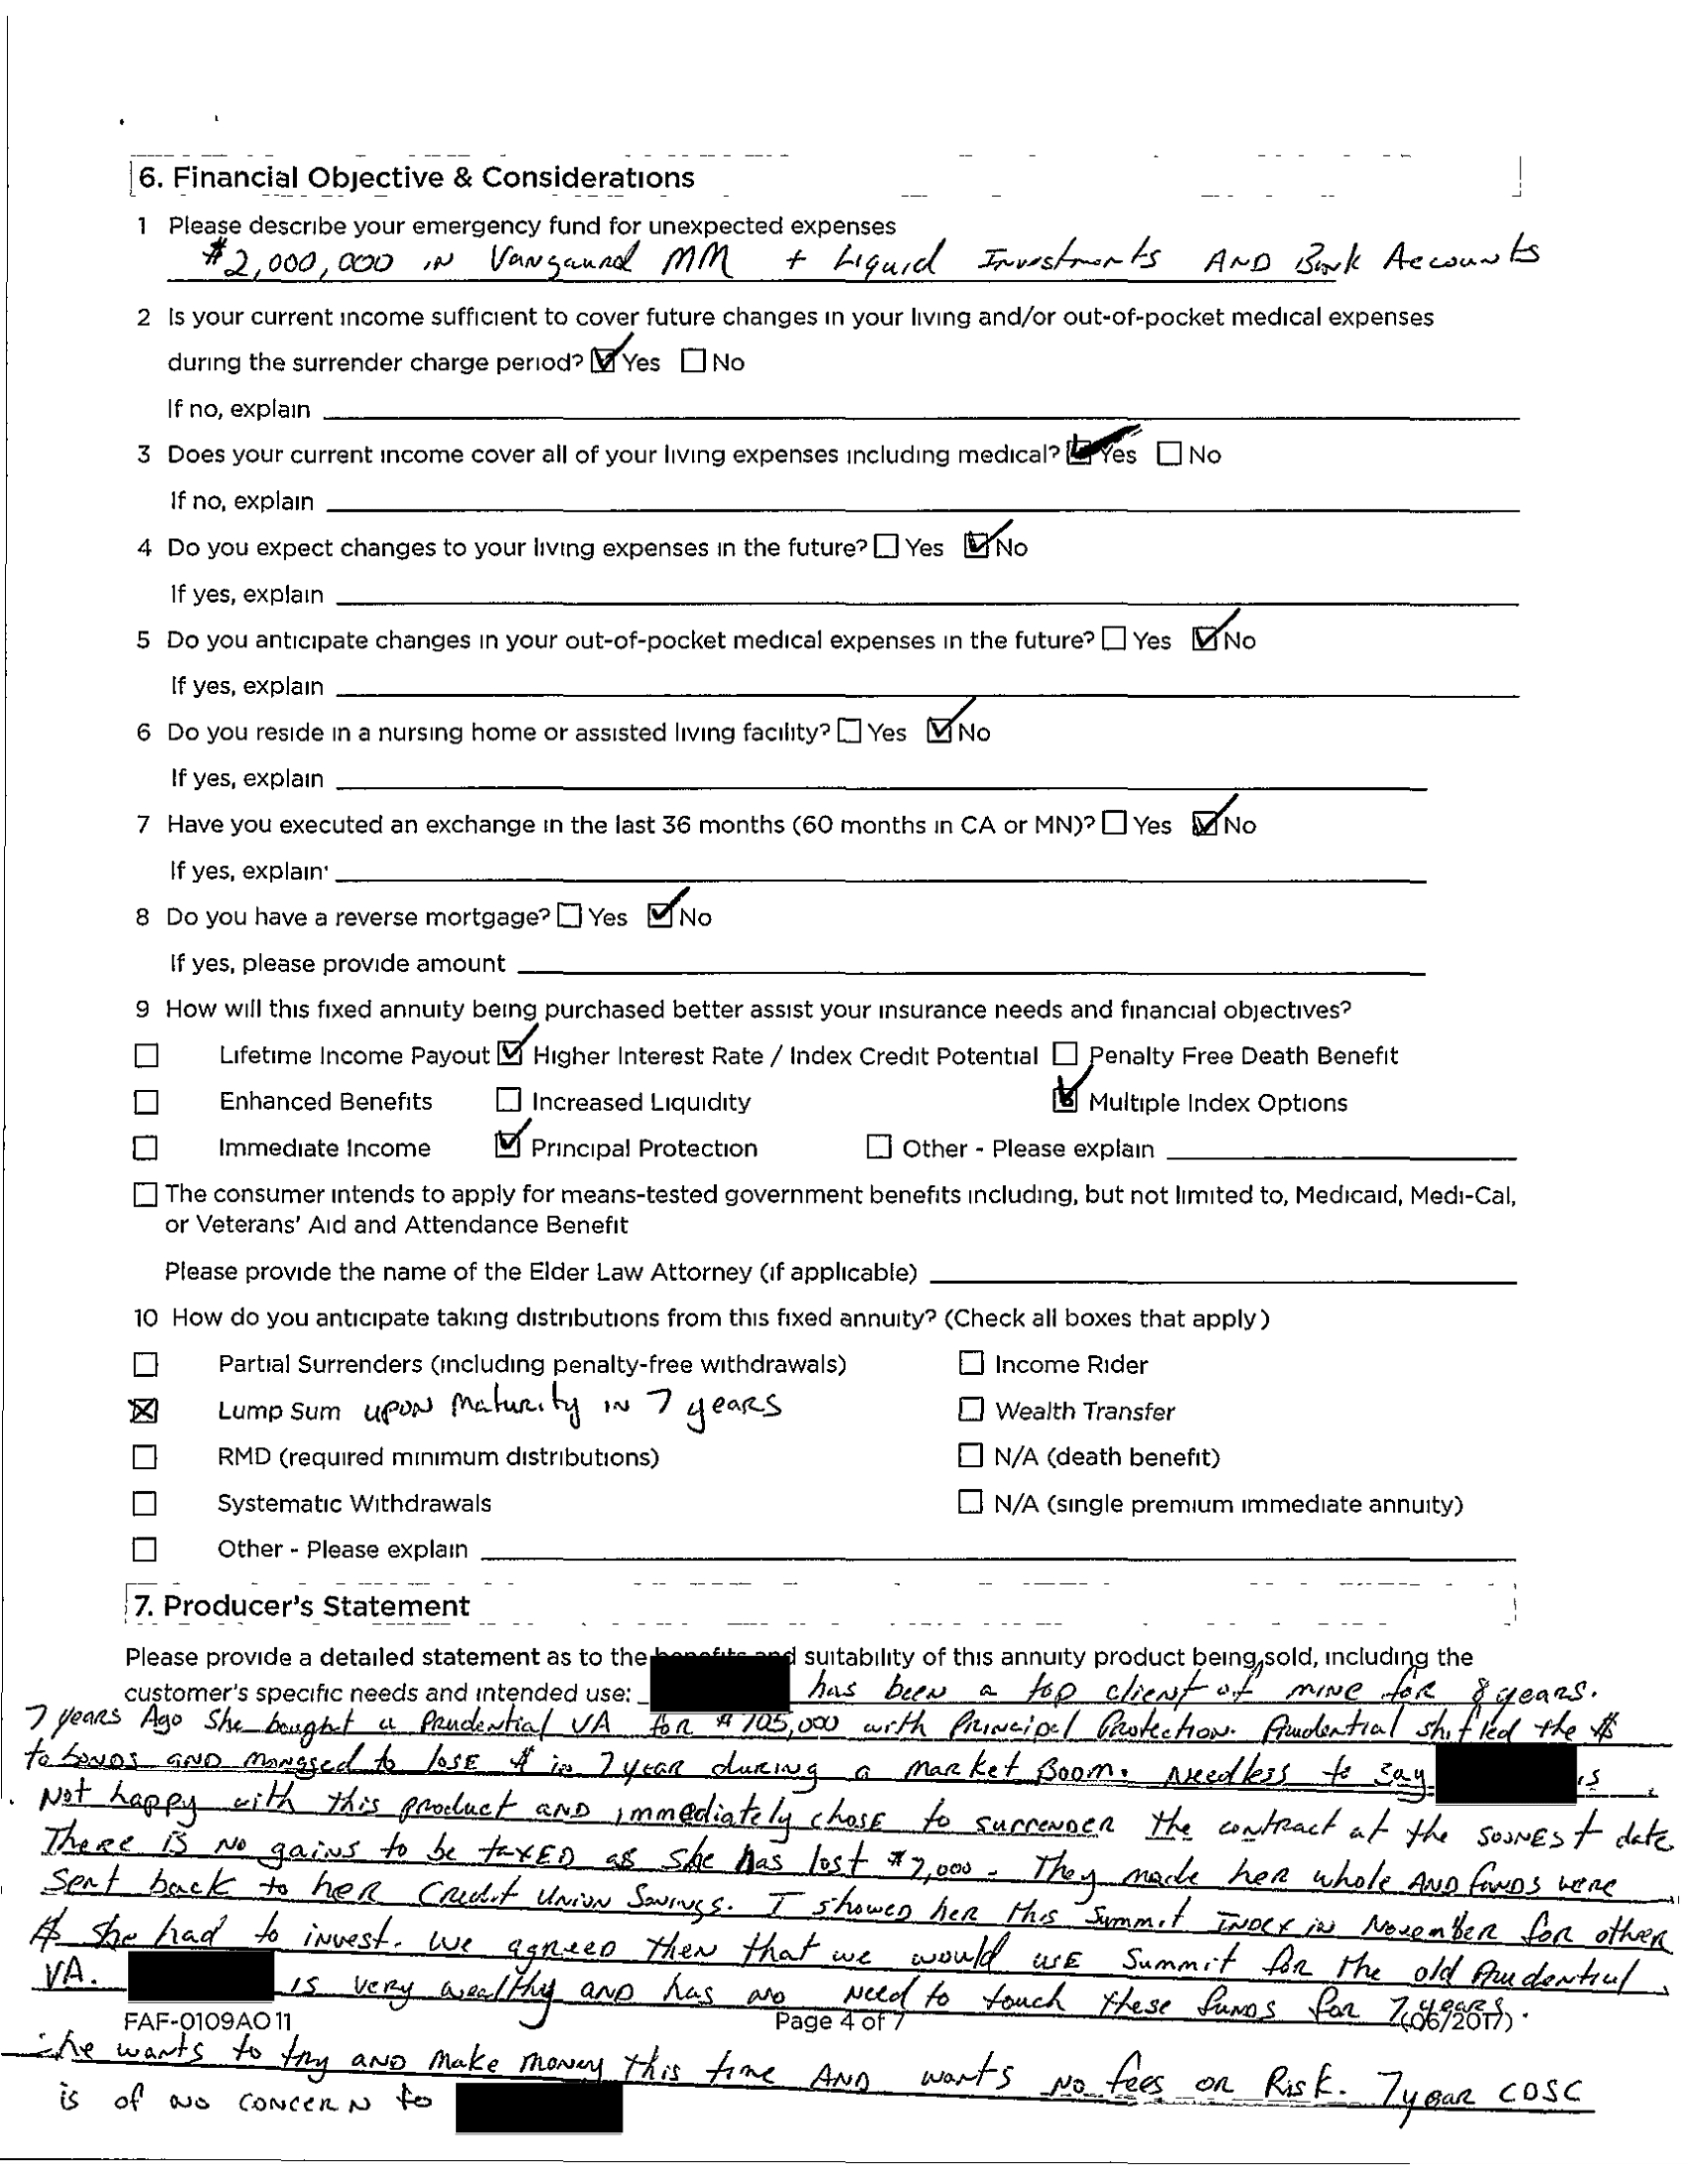 6. Financial Objective & Considerations
1 Please describe your emergency fund for unexpected expenses
$2,000,000 IN Vangaurd MM + Liquid Investments AND Bank Accounts
2 Is your current income sufficient to cover future changes in your living and/or out-of-pocket medical expenses
during the surrender charge period? ☑ Yes ☐ No
If no, explain
3 Does your current income cover all of your living expenses including medical? ☑ Yes ☐ No
If no, explain
4 Do you expect changes to your living expenses in the future? ☐ Yes ☑ No
If yes, explain
5 Do you anticipate changes in your out-of-pocket medical expenses in the future? ☐ Yes ☑ No
If yes, explain
6 Do you reside in a nursing home or assisted living facility? ☐ Yes ☑ No
If yes, explain
7 Have you executed an exchange in the last 36 months (60 months in CA or MN)? ☐ Yes ☑ No
If yes, explain
8 Do you have a reverse mortgage? ☐ Yes ☑ No
If yes, please provide amount
9 How will this fixed annuity being purchased better assist your insurance needs and financial objectives?
☐ Lifetime Income Payout ☑ Higher Interest Rate / Index Credit Potential ☐ Penalty Free Death Benefit
☐ Enhanced Benefits ☐ Increased Liquidity ☑ Multiple Index Options
☐ Immediate Income ☑ Principal Protection ☐ Other - Please explain
☐ The consumer intends to apply for means-tested government benefits including, but not limited to, Medicaid, Medi-Cal,
or Veterans' Aid and Attendance Benefit
Please provide the name of the Elder Law Attorney (if applicable)
10 How do you anticipate taking distributions from this fixed annuity? (Check all boxes that apply)
☐ Partial Surrenders (including penalty-free withdrawals) ☐ Income Rider
☒ Lump Sum upon Maturity in 7 years ☐ Wealth Transfer
☐ RMD (required minimum distributions) ☐ N/A (death benefit)
☐ Systematic Withdrawals ☐ N/A (single premium immediate annuity)
☐ Other - Please explain
7. Producer's Statement
Please provide a detailed statement as to the benefits and suitability of this annuity product being sold, including the
customer's specific needs and intended use: has been a top client of mine for 8 years.
7 years Ago she bought a Prudential VA for $705,000 with Principal Protection. Prudential shifted the $
to bonds AND managed to lose $ in 7 year during a market Boom. Needless to say is
Not happy with this product AND immediately chose to surrender the contract at the soonest date
There is no gains to be taxed as she has lost $7,000 - They made her whole AND funds were
sent back to her Credit Union Savings. I showed her this Summit Index in November for other
$ she had to invest. We agreed then that we would use Summit for the old Prudential
VA. is very wealthy and has no need to touch these funds for 7 years.
FAF-0109AO 11 Page 4 of 7 (06/2017)
she wants to try AND make money this time AND wants no fees or Risk. 7 year CDSC
is of no concern to